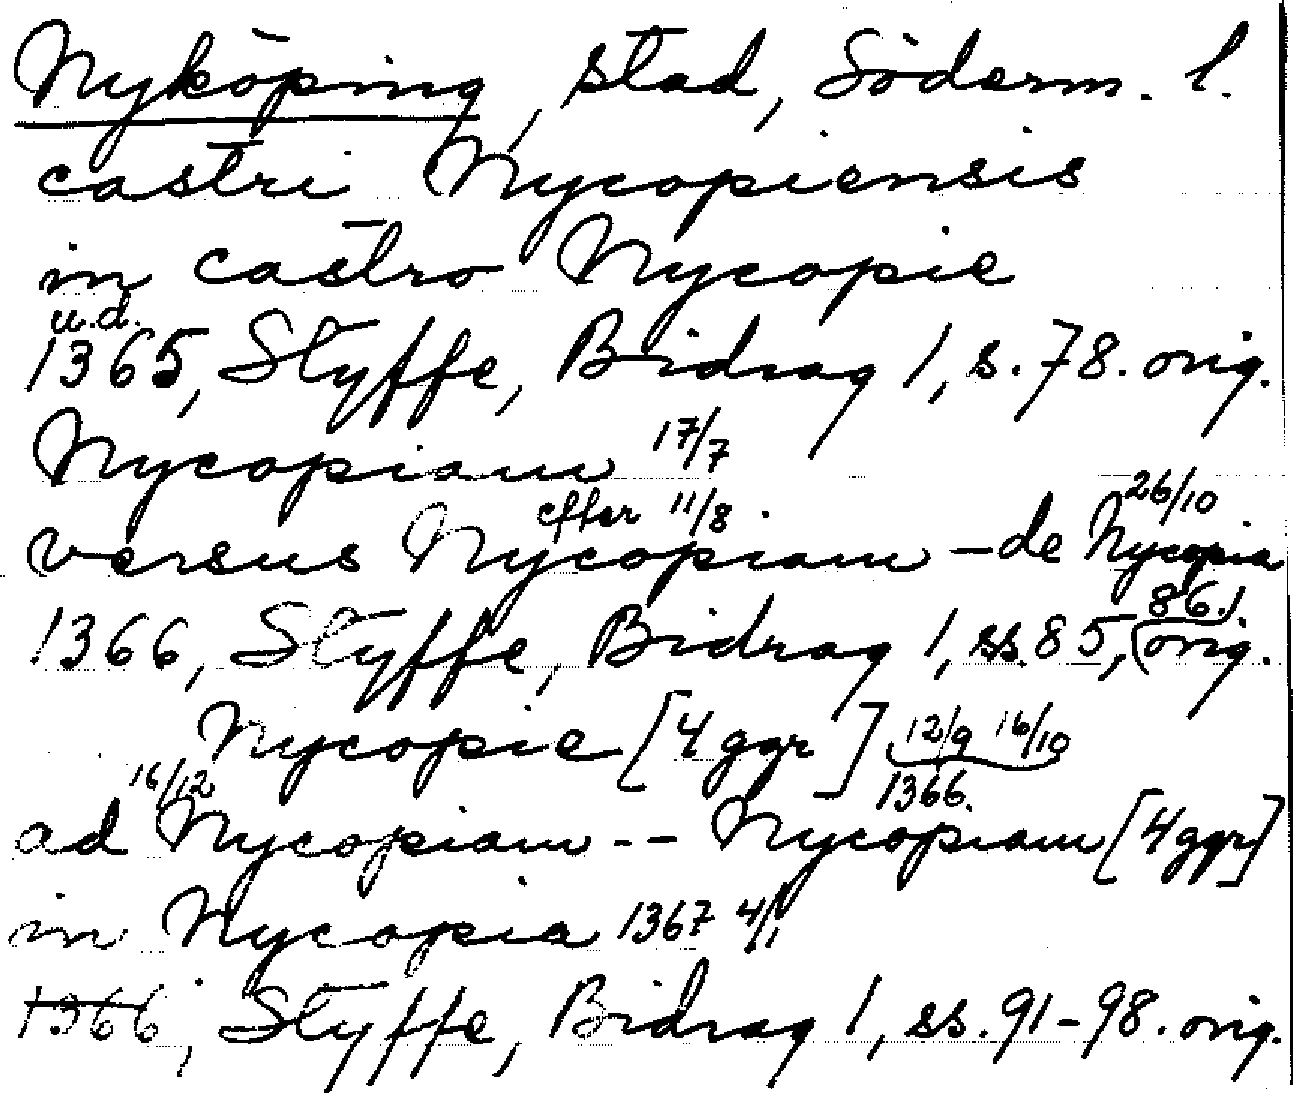 Nyköping, stad, Söderm. l.
castri Nycopiensis
in castro Nycopie
u.d.
1365, Styffe, Bidrag 1, s. 78. orig.
Nycopiam 17/7
efter 11/8 26/10
versus Nycopiam – de Nycopia
86.)
1366, Styffe, Bidrag 1, ss. 85, (orig.
Nycopie [4 ggr] 12/9 16/10
16/12 1366.
ad Nycopiam -- Nycopiam [4 ggr]
in Nycopia 1367 4/1
1366, Styffe, Bidrag 1, ss. 91-98. orig.